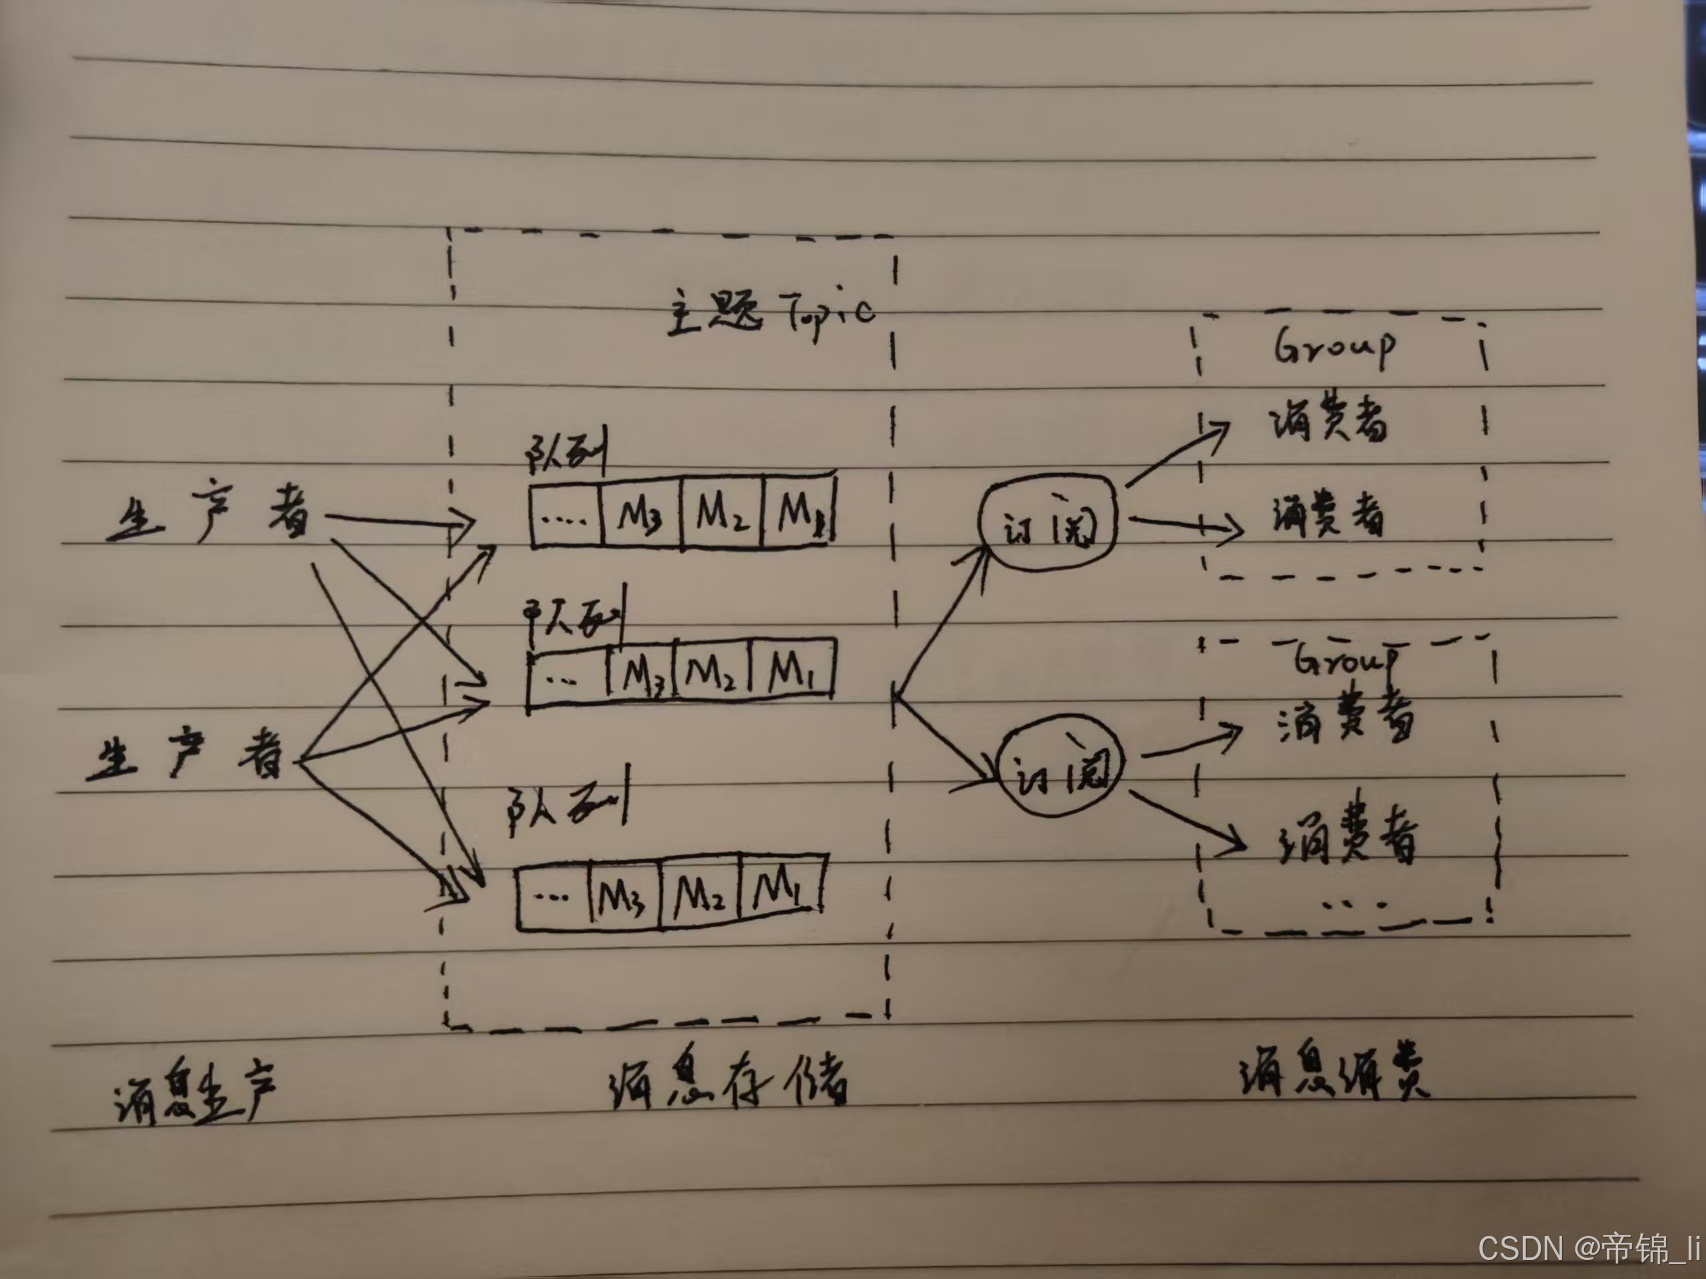 主题 Topic
Group
消费者
队列
生产者
.... M3 M2 M1
订阅
消费者
队列
... M3 M2 M1
Group
消费者
生产者
订阅
队列
消费者
... M3 M2 M1
...
消息生产
消息存储
消息消费
CSDN @帝锦_li